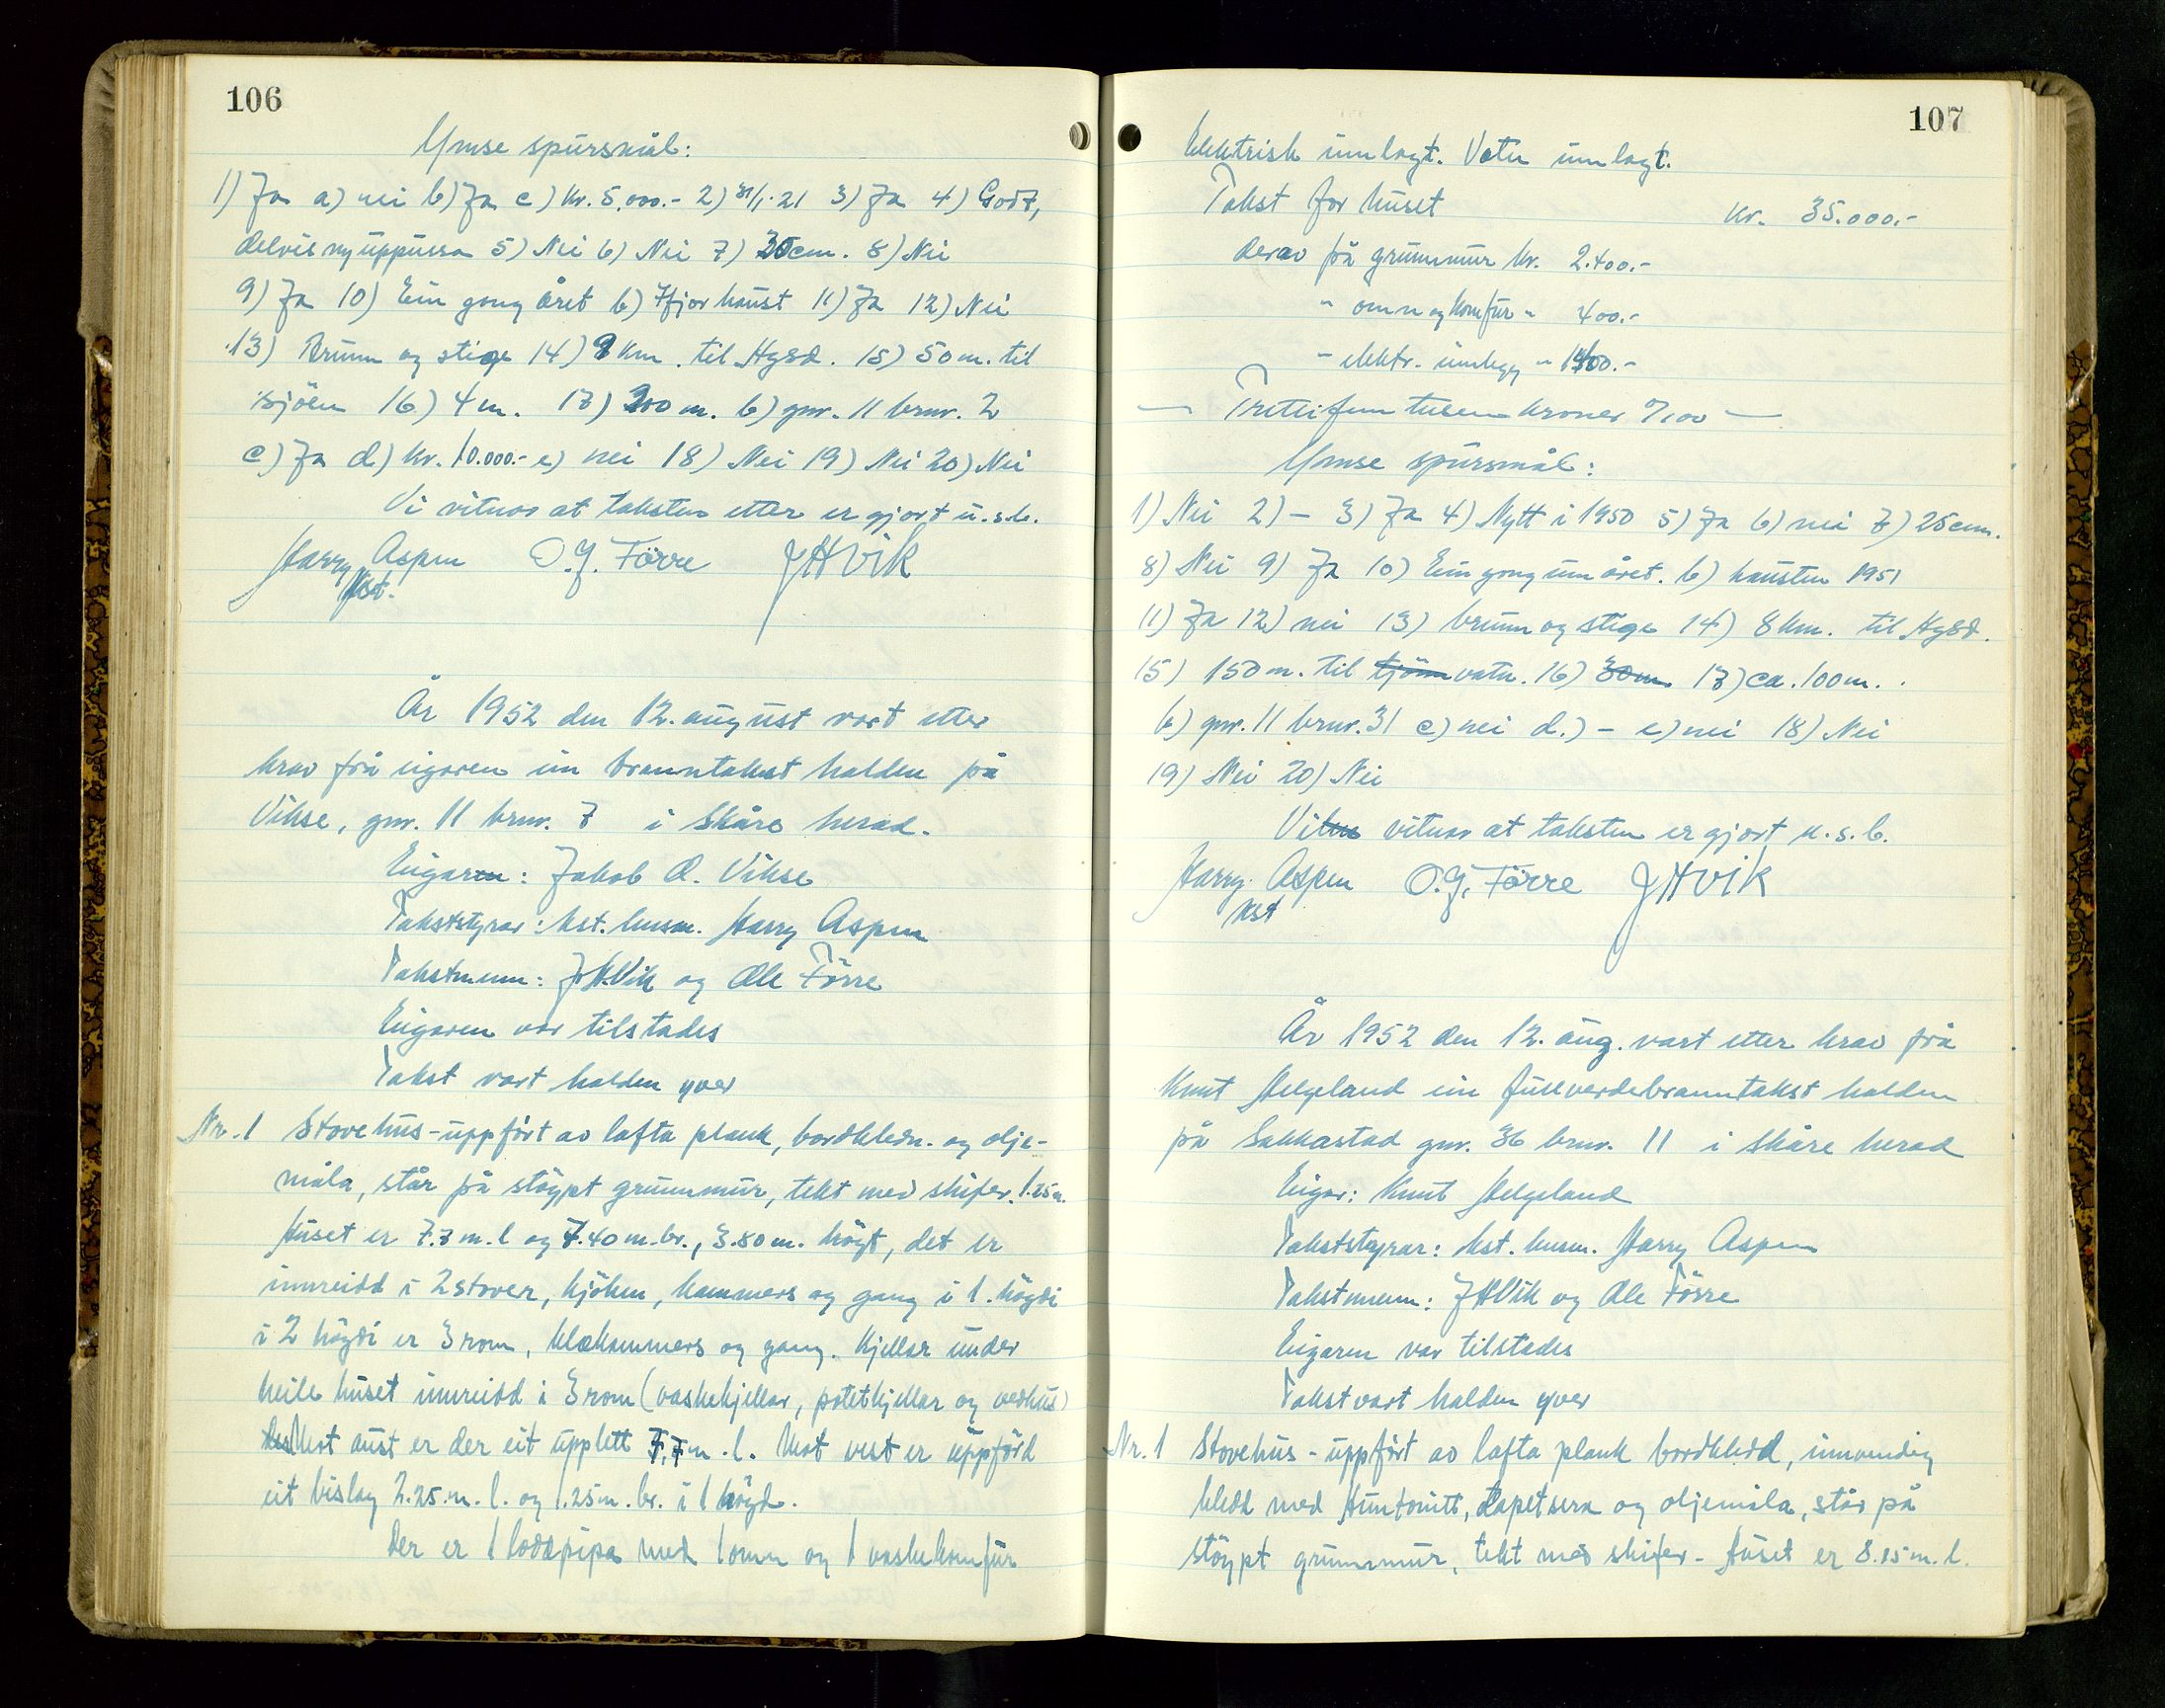 106
Ymse spursmål:
1) Ja a) nei b) Ja c) kr. 5.000.- 2) 31/1-21 3) Ja 4) Godt,
delvis nyuppussa 5) Nei 6) Nei 7) 30cm. 8) Nei
9) Ja 10) Ein gong året b) Ifjor haust 11) Ja 12) Nei
13) Brunn og stige 14) 9 km. til Hgsd. 15) 50 m. til
sjöen 16) 4 m. 17) 200 m. b) gnr. 11 brnr. 2
c) Ja d) kr. 10.000.- e) nei 18) Nei 19) Nei 20) Nei
Vi vitnar at taksten etter er gjort u.s.b.
Harry Aspen O.G. Förre JHVik
kst.
År 1952 den 12. august vart etter
krav frå eigaren ein branntakst halden på
Vikse, gnr. 11 brnr. 7 i Skåre herad.
Eigaren: Jakob O. Vikse
Takststyrar: kst. lensm. Harry Aspen
Takstmenn: JHVik og Ole Förre
Eigaren var tilstades
Takst vart halden yver
Nr. 1 Stovehus - uppfört av lafta plank, bordkledn. og olje-
måla, står på stöypt grunnmur, tekt med skifer. 1.25m.
Huset er 7.7 m. l og 7.40 m. br., 3.80 m. högt, det er
innreidd i 2 stover, kjöken, kammers og gang i 1. högdi
i 2 högdi er 3 rom, klekammers og gang. Kjellar under
heile huset innreidd i 3 rom (vaskekjellar, potetkjellar og vedhus)
Mot aust er der eit upplett 7.7 m. l. Mot vest er uppförd
eit bislag 2.25 m. l. og 1.25 m. br. i 1 högd.
Der er 1 loddpipa med 1 omn og 1 vaskekomfur
107
Elektrisk innlagt. Vatn innlagt.
Takst for huset kr. 35.000.-
derav på grunnmur kr. 2.400.-
" omn og komfur " 400.-
" elektr. innlegg " 1400.-
— Trettifem tusen kroner 0/00 —
Ymse spursmål:
1) Nei 2) - 3) Ja 4) Nytt i 1950 5) Ja 6) nei 7) 25cm.
8) Nei 9) Ja 10) Ein gong um året. b) hausten 1951
11) Ja 12) nei 13) brunn og stige 14) 8 km. til Hgsd.
15) 150 m. til tjönn vatn. 16) 30 m. 17) ca. 100 m.
b) gnr. 11 brnr. 31 c) nei d.) - e) nei 18) Nei
19) Nei 20) Nei
Vi vitnar at taksten er gjort u.s.b.
Harry Aspen O.G. Förre JHVik
kst
År 1952 den 12. aug. vart etter krav frå
Knut Helgeland ein fullverdebranntakst halden
på Sakkastad gnr. 36 brnr. 11 i Skåre herad
Eigar: Knut Helgeland
Takststyrar: kst. lensm. Harry Aspen
Takstmenn: JHVik og Ole Förre
Eigaren var tilstades
Takst vart halden yver
Nr. 1 Stovehus - uppfört av lafta plank bordkledd, innvendig
kledd med Huntonitt, tapetsera og oljemåla, står på
stöypt grunnmur, tekt med skifer - Huset er 8.85 m. l.